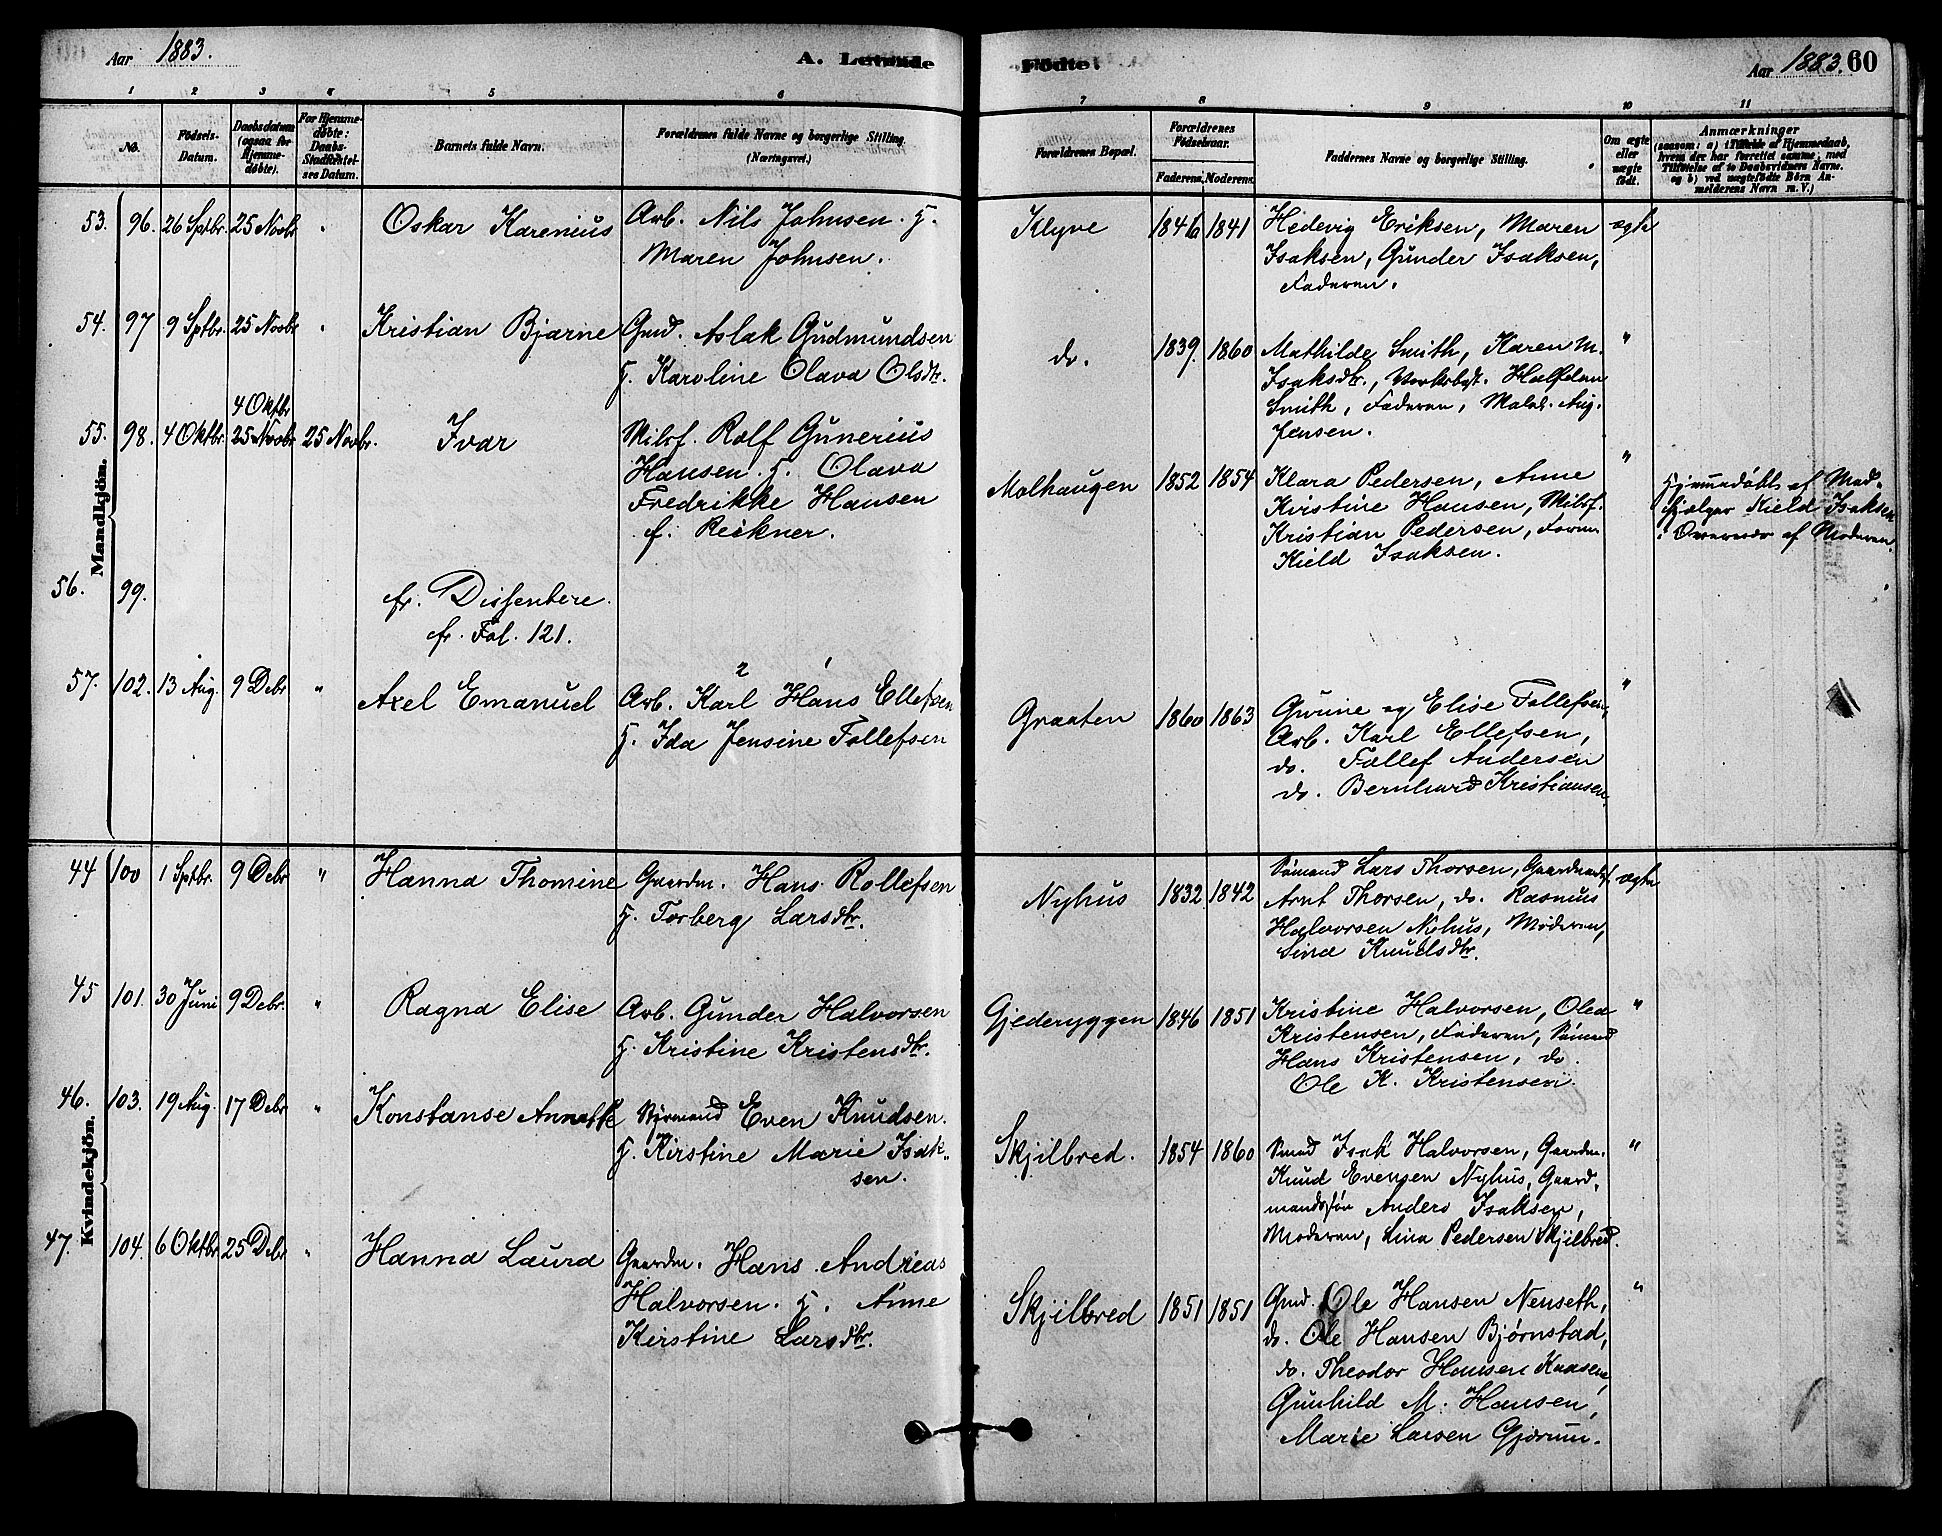 Aar 1883.
A. Levende
Fødte.
Aar 1883. 60
1 2 3 4 5 6 7 8 9 10 11
No.
Fødsels-
Datum.
Daabsdatum
(ogsaa for
Hjemme-
døbte).
For Hjemme-
døbte:
Daabs-
Stadfæstel-
ses Datum.
Barnets fulde Navn.
Forældrenes fulde Navne og borgerlige Stilling
(Næringsvei.)
Forældrenes Bopæl.
Forældrenes
Fødselsaar.
Faderens. Moderens.
Faddernes Navne og borgerlige Stilling.
Om ægte
eller
uægte
født.
Anmærkninger
(saasom: a) Tilfælde af Hjemmedaab,
hvem der har forrettet samme, med
Tilføielse af to Daabsvidners Navne.
og b) ved uægtefødte Børn An-
melderens Navn m. V.)
Mandkjøn.
53. 96. 26 Sptbr. 25 Novbr. Oskar Karenius
Arb. Nils Johnsen. H.
Maren Johnsen.
Klyve 1846 1841
Hedevig Eriksen, Maren
Isaksen, Gunder Isaksen,
Faderen.
ægte
54. 97 9 Sptbr. 25 Novbr. Kristian Bjarne
Gmd. Aslak Gudmundsen
H. Karoline Olava Olsdtr.
do. 1839. 1860
Mathilde Smith, Karen M.
Isaksdtr., Halfdan
Smith, Faderen, Aug.
Jensen.
"
55. 98. 4 Oktbr. 4 Oktbr
25 Novbr 25 Novbr. Ivar
Rolf Gunerius
Hansen. H. Olava
Fredrikke Hansen
f. Reikner.
Molhaugen 1852 1854
Klara Pedersen, Anne
Kristine Hansen,
Kristian Pedersen,
Kield Isaksen.
"
Hjemmedøbt af
Kield Isaksen
af Moderen.
56. 99.
fr. Dissentere.
cfr. Fol. 121.
57. 102. 13 Aug. 9 Debr " Axel Emanuel
2 1
Arb. Karl Hans Ellefsen
H. Ida Jensine Tollefsen
Graaten 1860 1863
Gurine og Elise Tollefsen,
Arb. Karl Ellefsen,
do. Tollef Andersen
do. Bernhard Kristiansen.
"
Kvindekjøn.
44 100 1 Sptbr. 9 Debr " Hanna Thomine
Gaardm. Hans Rollefsen
H. Torberg Larsdtr.
Nyhus 1832 1842
Sømand Lars Thorsen,
Arnt Thorsen, do. Rasmus
Halvorsen Nyhus, Moderen,
Sina Knudsdtr.
ægte
45 101. 30 Juni 9 Debr. " Ragna Elise
Arb. Gunder Halvorsen
H. Kristine Kristensdtr.
Gjederyggen 1846 1851
Kristine Halvorsen, Olea
Kristensen, Faderen, Sømand
Hans Kristensen, do.
Ole K. Kristensen.
"
46. 103. 19 Aug. 17 Debr " Konstanse Annette
Styrmand Even Knudsen.
H. Kirstine Marie Isak-
sen.
Skjilbred. 1854 1860
Smed Isak Halvorsen, Gaardm.
Knud Evensen Nyhus, Gaard-
mandssøn Anders Isaksen,
Moderen, Lina Pedersen Skjilbred.
"
47. 104. 6 Oktbr 25 Debr " Hanna Laura
Gaardm. Hans Andreas
Halvorsen. H. Anne
Kirstine Larsdtr.
Skjilbred 1851 1851
Gmd. Ole Hansen Nenseth,
do. Ole Hansen Bjørnstad,
do. Theodor Hansen Kaasene,
Gunhild M. Hansen,
Marie Larsen Gjerum.
"